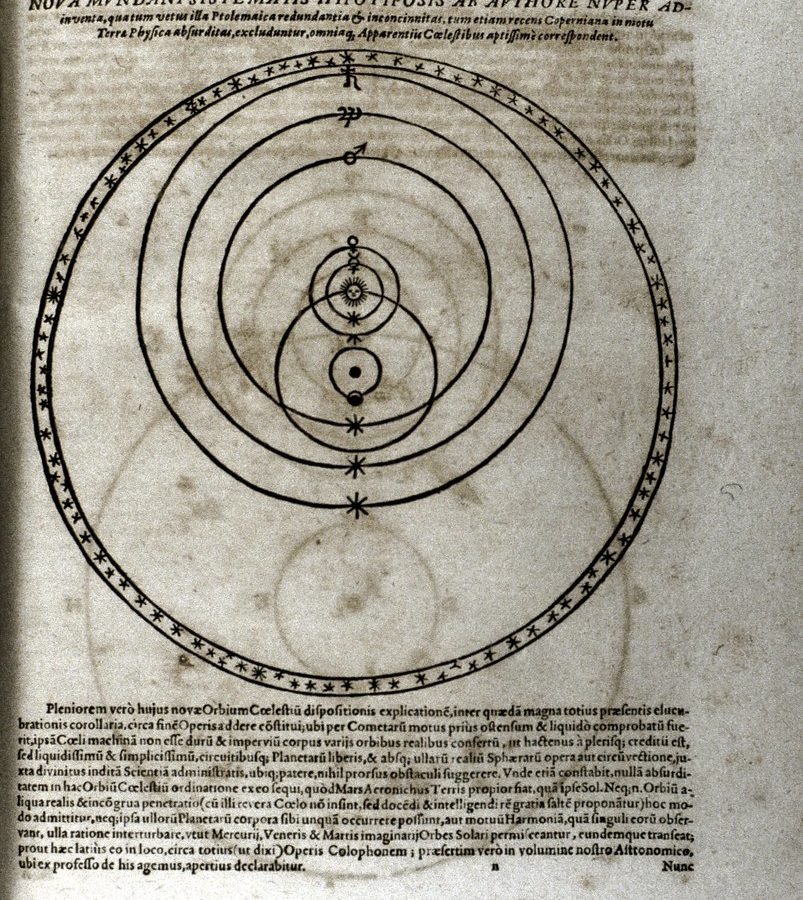 NOVA MVNDANI SYSTEMATIS HYPOTYPOSIS AB AVTHORE NVPER AD-
inventa, qua tum vetus illa Ptolemaica redundantia & inconcinnitas, tum etiam recens Coperniana in motu
Terræ Physica absurditas, excluduntur, omniaq, Apparentiis Cœlestibus aptissimè correspondent.
Pleniorem verò hujus novæ Orbium Cœlestiũ dispositionis explicationẽ, inter quædã magna totius præsentis elucu-
brationis corollaria, circa finẽ Operis addere cõstitui; ubi per Cometarũ motus prius ostensum & liquidò comprobatũ fue-
rit, ipsã Cœli machinã non esse durũ & imperviũ corpus varijs orbibus realibus confertũ, ut hactenus à plerisq; creditũ est,
sed liquidissimũ & simplicissimũ, circuitibusq; Planetarũ liberis, & absq; ullarũ realiũ Sphærarũ opera aut circũvectione, ju-
xta divinitus inditã Scientiã administratis, ubiq; patere, nihil prorsus obstaculi suggerere. Vnde etiã constabit, nullã absurdi-
tatem in hac Orbiũ Cœlestiũ ordinatione ex eo sequi, quòd Mars Acronichus Terris propior fiat, quã ipse Sol. Neq; n. Orbiũ a-
liqua realis & incõgrua penetratio (cũ illi revera Cœlo nõ insint, sed docẽdi & intelligendi rẽ gratia saltẽ proponãtur) hoc mo-
do admittitur, neq; ipsa ullorũ Planetarũ corpora sibi unquã occurrere possunt, aut motuũ Harmoniã, quã singuli eorũ obser-
vant, ulla ratione interturbare, vtut Mercurij, Veneris & Martis imaginarij Orbes Solari permisceantur, eundemque transeãt;
prout hæc latiùs eo in loco, circa totius (ut dixi) Operis Colophonem; præsertim verò in volumine nostro Astronomico,
ubi ex professo de his agemus, apertius declarabitur. n Nunc